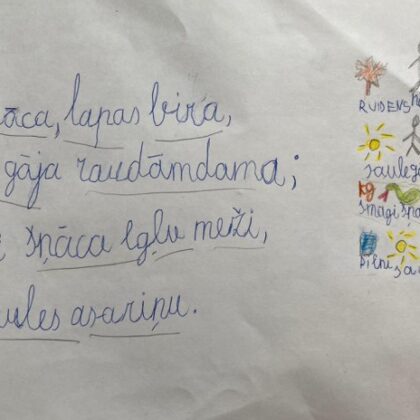 āca, lapas bira,
gāja raudāmdama;
šņāca egļu meži,
ules asariņu.
RUDENS
saule
kg
smagi
pilni